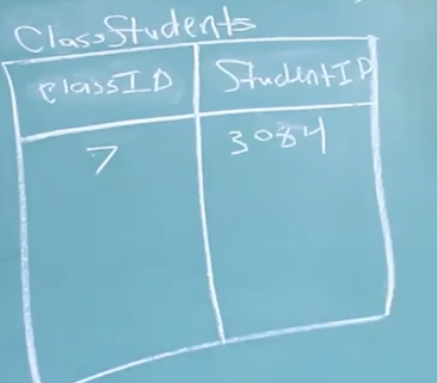 ClassStudents
classID StudentID
7 3084